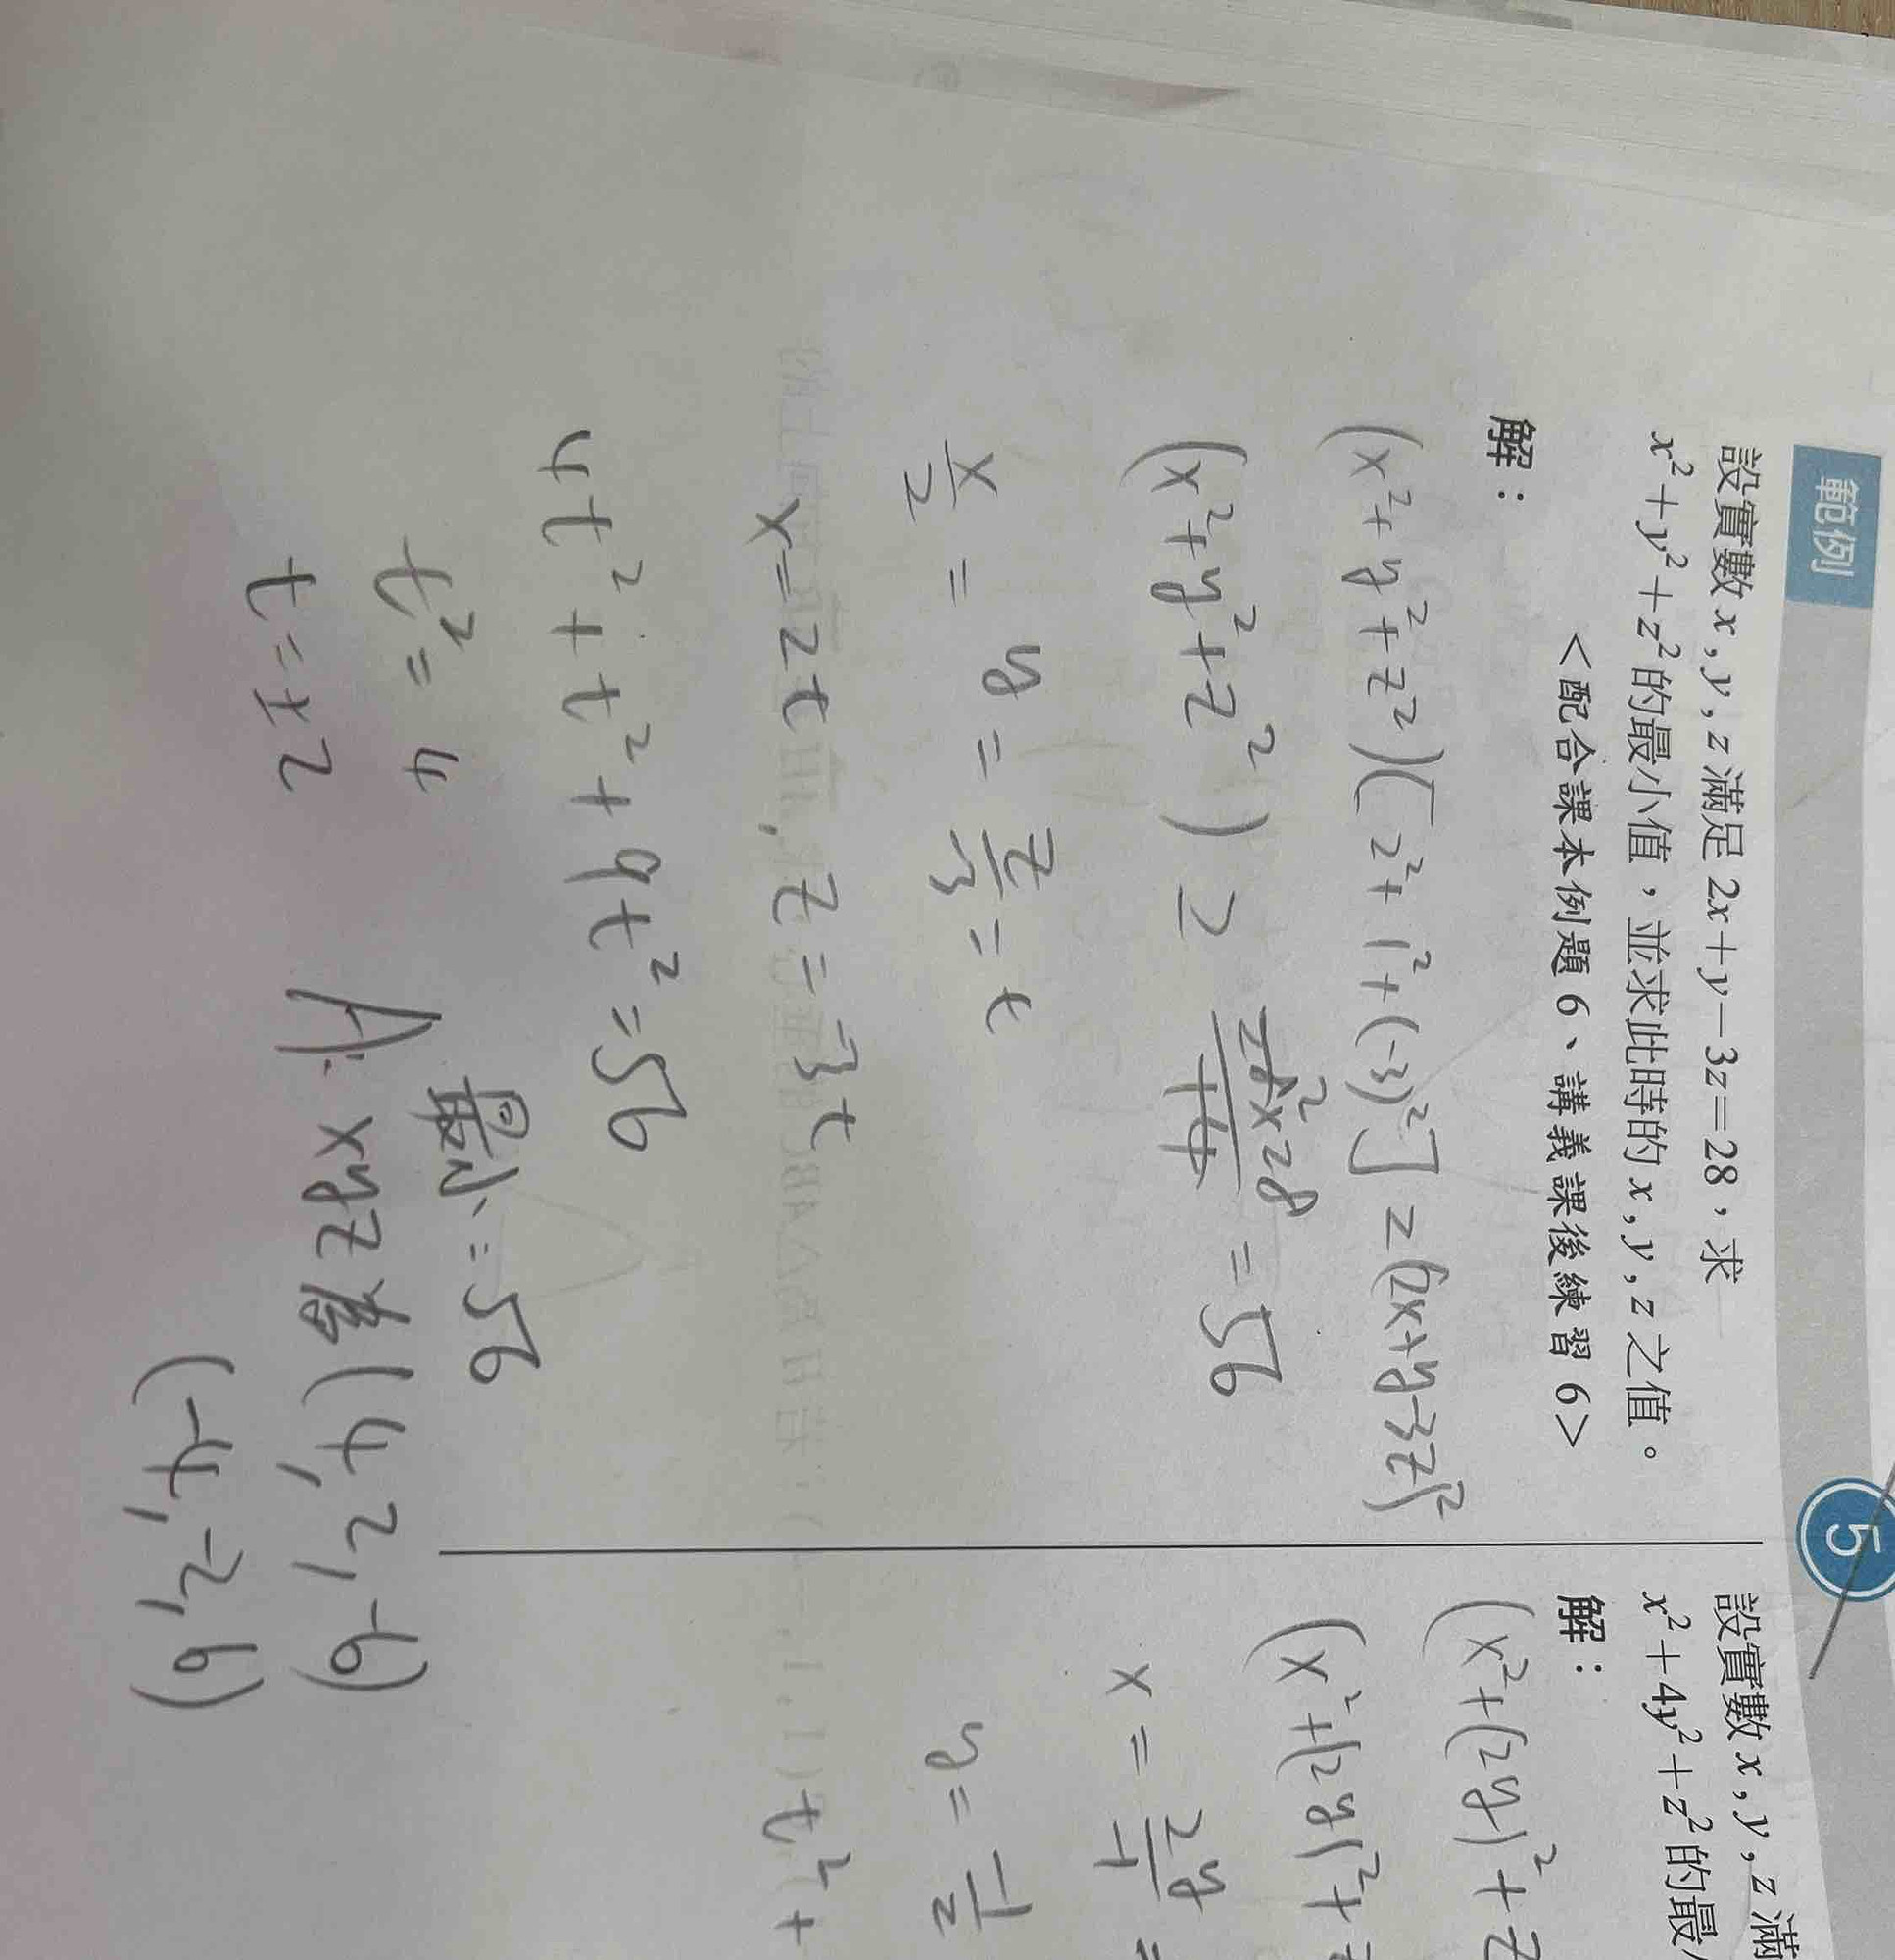 範例
設實數x,y,z滿足2x+y-3z=28,求
x²+y²+z²的最小值,並求此時的x,y,z之值。
<配合課本例題6、講義課後練習6>
解:
(x²+y²+z²)[2²+1²+(-3)²]≥(2x+y-3z)²
(x²+y²+z²)≥ 28×28/14 = 56
x/2 = y = z/-3 = t
x=2t, z=-3t
4t²+t²+9t²=56
t²=4 最小=56
t=±2 A: xyz (4,2,-6)
(-4,-2,6)
5
設實數x,y,z滿
x²+4y²+z²的最
解:
(x²+(2y)²+z
(x²+(2y)²+
x = 2y/1 =
y = 1/2
t²+